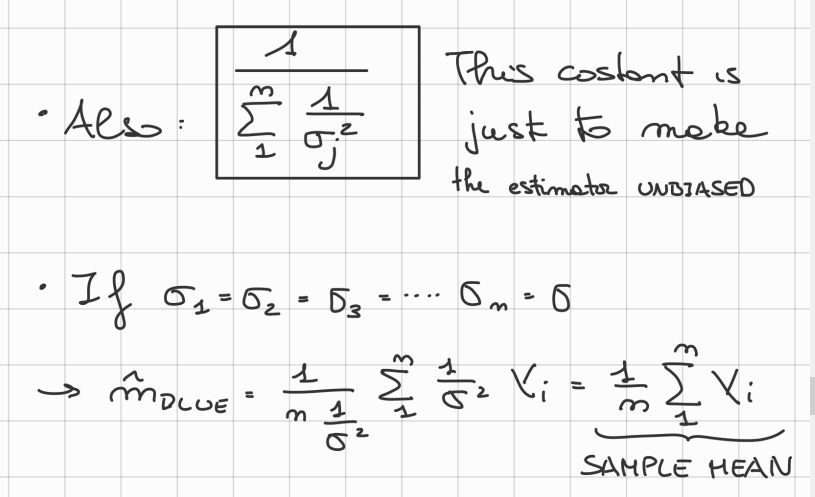 • Also: 1 / (∑_1^n 1/σ_j²) This costant is
just to make
the estimator UNBIASED
• If σ_1 = σ_2 = σ_3 = .... σ_n = σ
→ m̂_BLUE = 1 / (n 1/σ²) ∑_1^n 1/σ² Y_i = 1/n ∑_1^n Y_i
SAMPLE MEAN